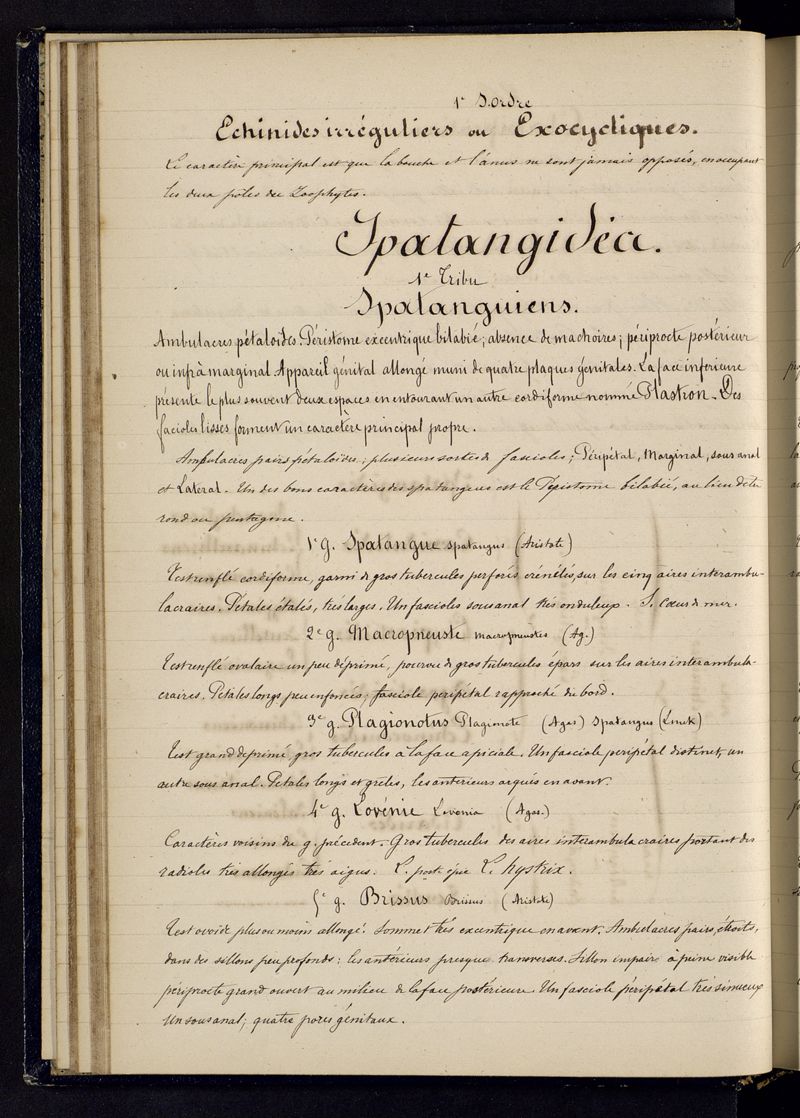 1r S.ordre
Echinides irréguliers ou Exocycliques.
Le caractère principal est que la bouche et l'ânus ne sont jamais opposés, en occupant
les deux pôles du Zoophytes.
Spatangidéa.
1e Tribu
Spatanguiens.
Ambulacres pétaloïdes. Péristome excentrique bilabié; absence de machoires; périprocte postérieur
ou infrà marginal. Appareil génital allongé muni de quatre plaques génitales. La face inférieure
présente le plus souvent deux espaces en entourant un autre cordiforme nommé Plastron. Des
facioles lisses forment un caractère principal propre.
Ambulacres pairs pétaloïdes; plusieurs sortes de fascioles; Péripétal, Marginal, sous anal
et Latéral. Un des bons caractères des spatangues est le Péristome bilabié, au lieu d'être
rond ou pentagone.
1r g. Spatangue Spatangus (Aristote)
Test renflé cordiforme, garni de gros tubercules perforés crénélés, sur les cinq aires interambu-
lacraires. Pétales étalés, très larges. Un fascioles sous anal très onduleux. S. Cœur de mer.
2e g. Macropneuste macropneustes (Ag.)
Test renflé ovalaire un peu déprimé, pourvu de gros tubercules épars sur les aires interambula-
craires. Pétales longs peu enfoncés; fasciole péripétal rapproché du bord.
3e g. Plagionotus Plagionote (Agas) Spatangus (Lmck)
Test grand déprimé, gros tubercules à la face apiciale. Un fasciole péripétal distinct, un
autre sous anal. Pétales longs et grêles, les antérieurs arqués en avant.
4e g. Lovénie Lovenia (Agas.)
Caractères voisins du g. précédent. Gros tubercules des aires interambulacraires portant des
radioles très allongés très aigus. L. hystrix.
5e g. Brissus Brissus (Aristote)
Test ovoïde plus ou moins allongé. Sommet très excentrique en avant. Ambulacres pairs, étroits,
dans des sillons peu profonds; les antérieurs presque transverses. Sillon impaire à peine visible
périprocte grand ouvert au milieu de la face postérieure. Un fasciole péripétal très sinueux
Un sous anal; quatre pores génitaux.